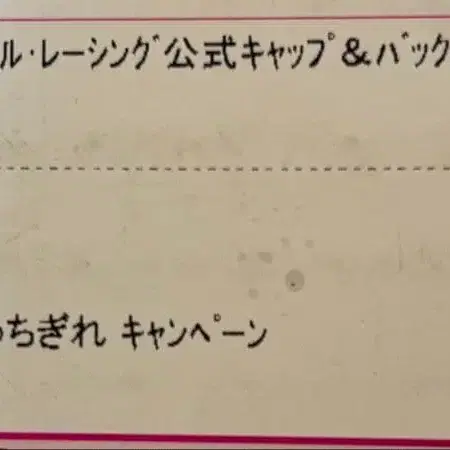 ル・レーシング公式キャップ&バック
ちぎれ キャンペーン